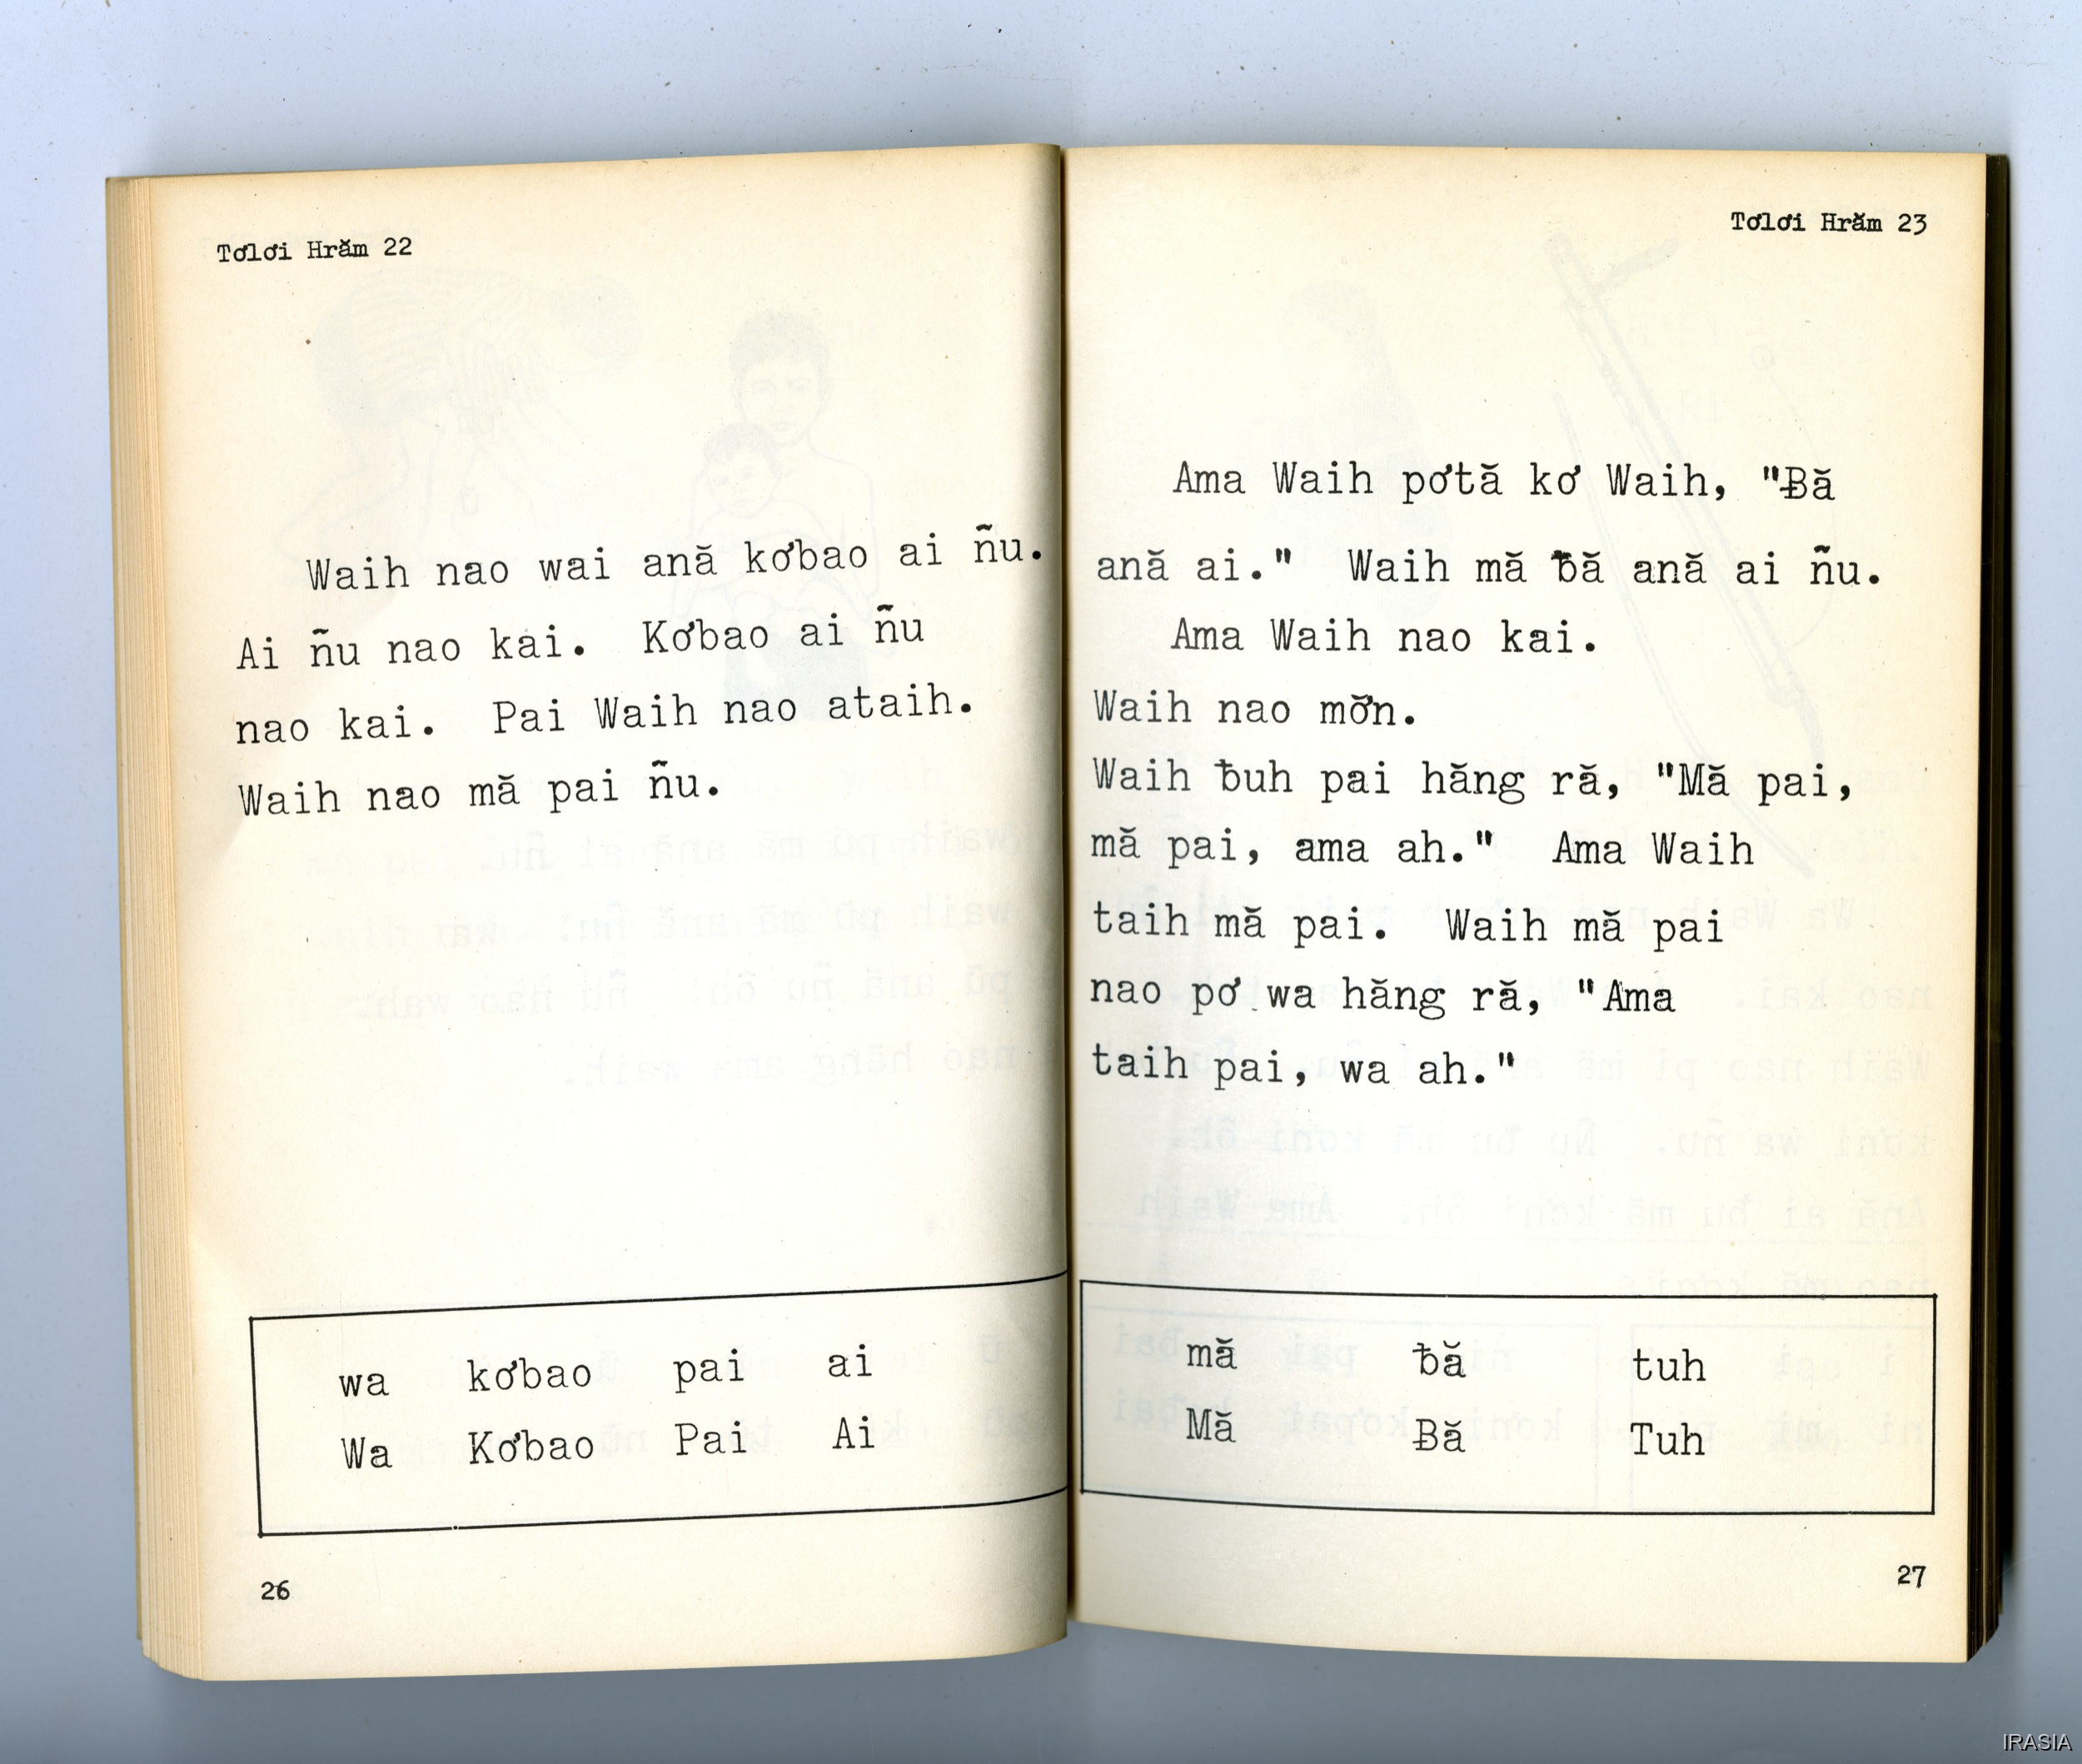 Tơlơi Hrăm 22
Waih nao wai ană kơbao ai ñu.
Ai ñu nao kai. Kơbao ai ñu
nao kai. Pai Waih nao ataih.
Waih nao mă pai ñu.
wa kơbao pai ai
Wa Kơbao Pai Ai
26
Tơlơi Hrăm 23
Ama Waih pơtă kơ Waih, "Ƀă
ană ai." Waih mă ƀă ană ai ñu.
Ama Waih nao kai.
Waih nao mơ̆n.
Waih ƀuh pai hăng ră, "Mă pai,
mă pai, ama ah." Ama Waih
taih mă pai. Waih mă pai
nao pơ wa hăng ră, "Ama
taih pai, wa ah."
mă ƀă tuh
Mă Ƀă Tuh
27
IRASIA